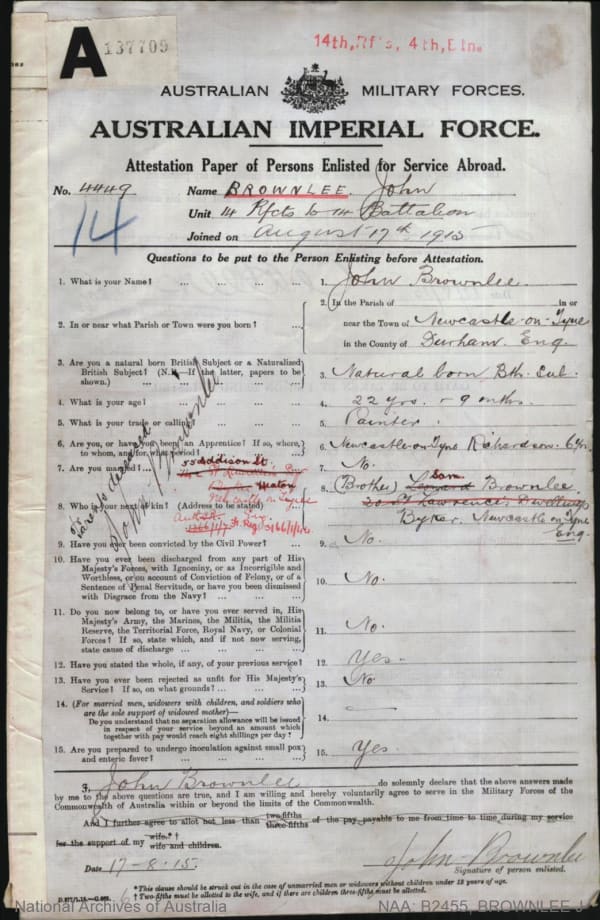 A 137709
14th, Rf's, 4th, Bln.
AUSTRALIAN MILITARY FORCES.
AUSTRALIAN IMPERIAL FORCE.
Attestation Paper of Persons Enlisted for Service Abroad.
No. 4449 Name BROWNLEE. John
14 Unit 14 Rfcts to 14 Battalion
Joined on August 17th 1915
Questions to be put to the Person Enlisting before Attestation.
1. What is your Name? ... ... ... ... 1. John Brownlee.
2. In or near what Parish or Town were you born? ... 2. In the Parish of in or
near the Town of Newcastle-on-Tyne
in the County of Durham. Eng.
3. Are you a natural born British Subject or a Naturalized
British Subject? (N.B.—If the latter, papers to be
shown.) ... ... ... ... 3. Natural born Bth. Sub.
4. What is your age? ... ... ... ... 4. 22 yrs. - 9 mths.
5. What is your trade or calling? ... ... 5. Painter.
6. Are you, or have you been an Apprentice? If so, where,
to whom, and for what period? ... ... 6. Newcastle-on-Tyne Richardson. 6 yrs
7. Are you married? ... ... ... 7. No.
8. Who is your next of kin? (Address to be stated) 8. (Brother) Leonard Sam Brownlee
55 Addison St
Heaton
Newcastle on Tyne
20 St Lawrence's Dwellings
Byker. Newcastle on Tyne
Eng.
9. Have you ever been convicted by the Civil Power? ... 9. No.
10. Have you ever been discharged from any part of His
Majesty's Forces, with Ignominy, or as Incorrigible and
Worthless, or on account of Conviction of Felony, or of a
Sentence of Penal Servitude, or have you been dismissed
with Disgrace from the Navy? ... ... ... 10. No.
11. Do you now belong to, or have you ever served in, His
Majesty's Army, the Marines, the Militia, the Militia
Reserve, the Territorial Force, Royal Navy, or Colonial
Forces? If so, state which, and if not now serving,
state cause of discharge ... ... ... ... 11. No.
12. Have you stated the whole, if any, of your previous service? 12. Yes.
13. Have you ever been rejected as unfit for His Majesty's
Service? If so, on what grounds? ... ... ... 13. No
14. (For married men, widowers with children, and soldiers who
are the sole support of widowed mother)—
Do you understand that no separation allowance will be issued
in respect of your service beyond an amount which
together with pay would reach eight shillings per day? 14. —
15. Are you prepared to undergo inoculation against small pox
and enteric fever? ... ... ... ... 15. Yes.
John Brownlee
I, John Brownlee do solemnly declare that the above answers made
by me to the above questions are true, and I am willing and hereby voluntarily agree to serve in the Military Forces of the
Commonwealth of Australia within or beyond the limits of the Commonwealth.
And I further agree to allot not less than two-fifths three-fifths of the pay payable to me from time to time during my service
for the support of my wife.*† wife and children.
Date 17-8-15. John Brownlee
Signature of person enlisted.
* This clause should be struck out in the case of unmarried men or widowers without children under 18 years of age.
† Two-fifths must be allotted to the wife, and if there are children three-fifths must be allotted.
National Archives of Australia NAA: B2455, BROWNLEE J